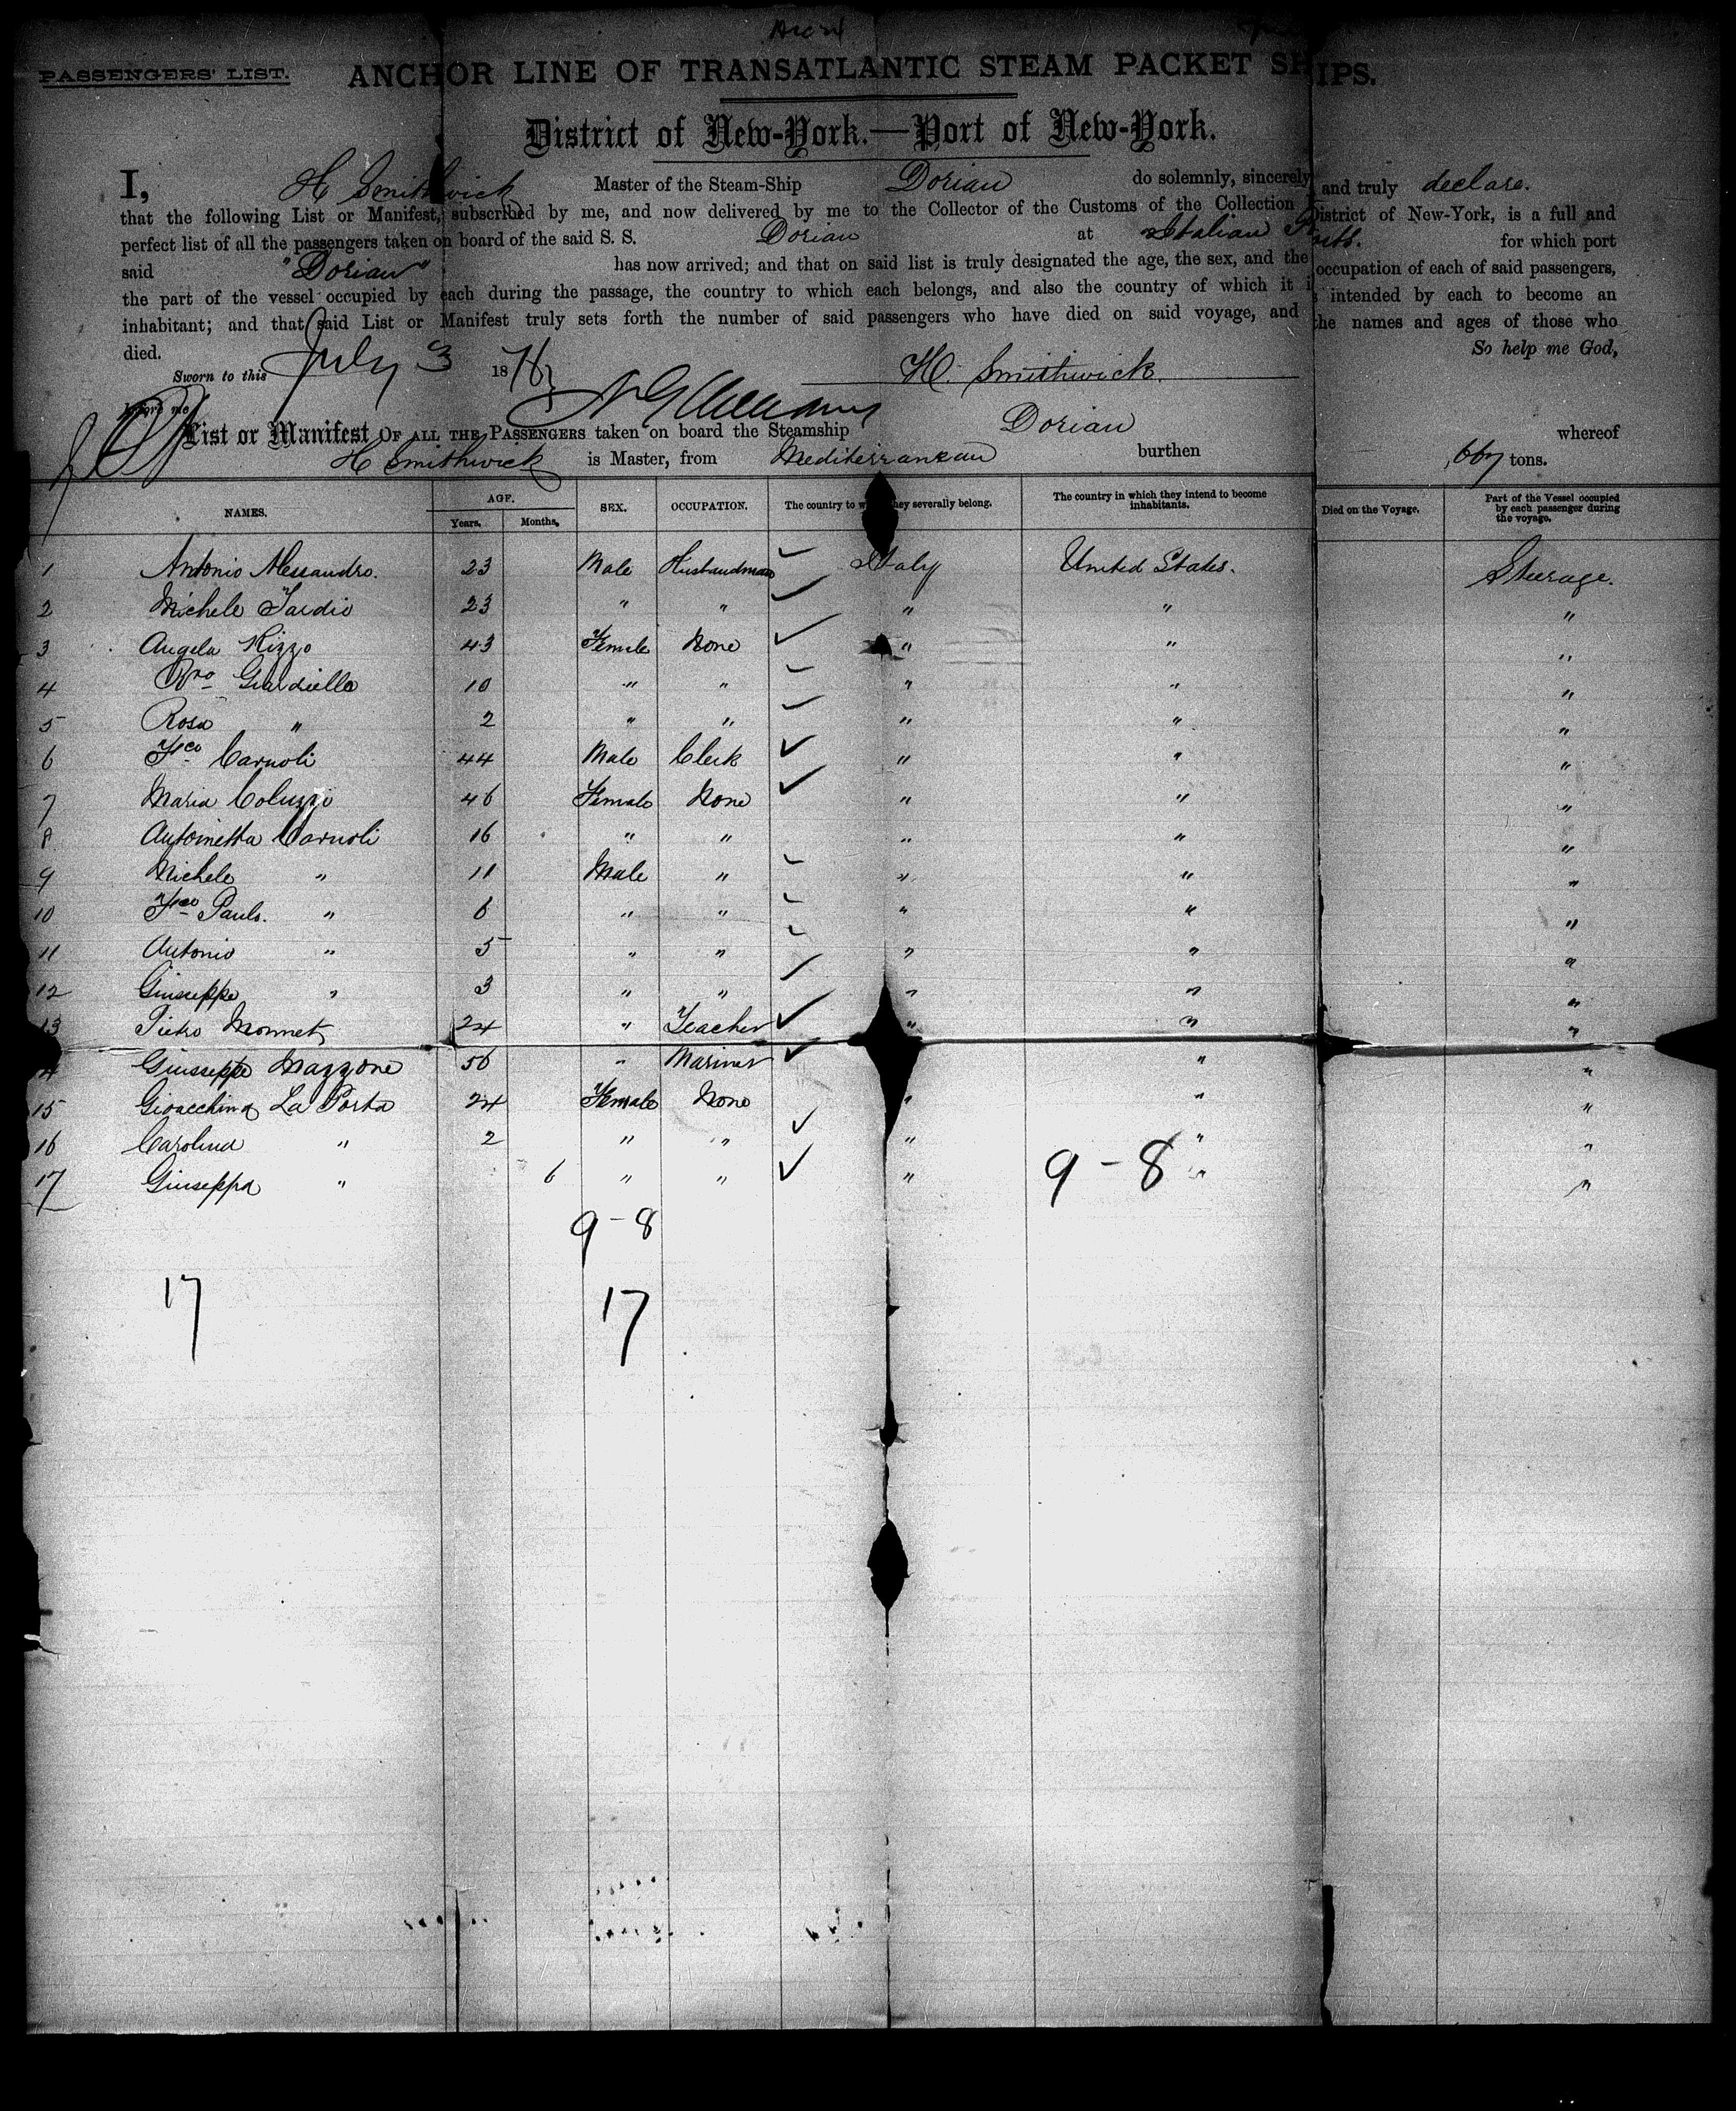 PASSENGERS' LIST.
ANCHOR LINE OF TRANSATLANTIC STEAM PACKET SHIPS.
District of New-York.—Port of New-York.
I, H Smithwick Master of the Steam-Ship Dorian do solemnly, sincerely and truly declare.
that the following List or Manifest, subscribed by me, and now delivered by me to the Collector of the Customs of the Collection District of New-York, is a full and
perfect list of all the passengers taken on board of the said S. S. Dorian at Italian Ports. for which port
said "Dorian" has now arrived; and that on said list is truly designated the age, the sex, and the occupation of each of said passengers,
the part of the vessel occupied by each during the passage, the country to which each belongs, and also the country of which it is intended by each to become an
inhabitant; and that said List or Manifest truly sets forth the number of said passengers who have died on said voyage, and the names and ages of those who
died. So help me God,
Sworn to this July 3 1878 H. Smithwick.
before me
List or Manifest OF ALL THE PASSENGERS taken on board the Steamship Dorian whereof
H Smithwick is Master, from Mediterranean burthen tons.
NAMES. AGE. Years. Months. SEX. OCCUPATION. The country to which they severally belong. The country in which they intend to become inhabitants. Died on the Voyage. Part of the Vessel occupied by each passenger during the voyage.
1 Antonio Alessandro. 23 Male Husbandman Italy United States. Steerage.
2 Michele Tardio 23 " " " " "
3 Angela Rizzo 43 Female None " " "
4 Rosa Giardiello 10 " " " " "
5 Rosa " 2 " " " " "
6 Fco Carnoli 44 Male Clerk " " "
7 Maria Coluzzi 46 Female None " " "
8 Antoinetta Carnoli 16 " " " " "
9 Michele " 11 Male " " " "
10 Fco Paulo. " 6 " " " " "
11 Antonio " 5 " " " " "
12 Giuseppe " 3 " " " " "
13 Pietro Monnet 24 " Teacher " " "
14 Giusseppe Mazzone 56 " Mariner " "
15 Gioacchina La Porta 24 Female None " " "
16 Carolina " 2 " " " " "
17 Giuseppa " 6 " " " " "
9-8
9-8
17
17